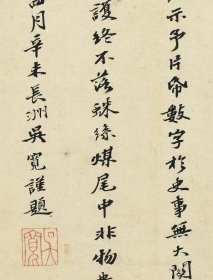 示予片帋數字於史事無大関
護終不落蛛絲煤尾中非物
四月辛未長洲吳寬謹題